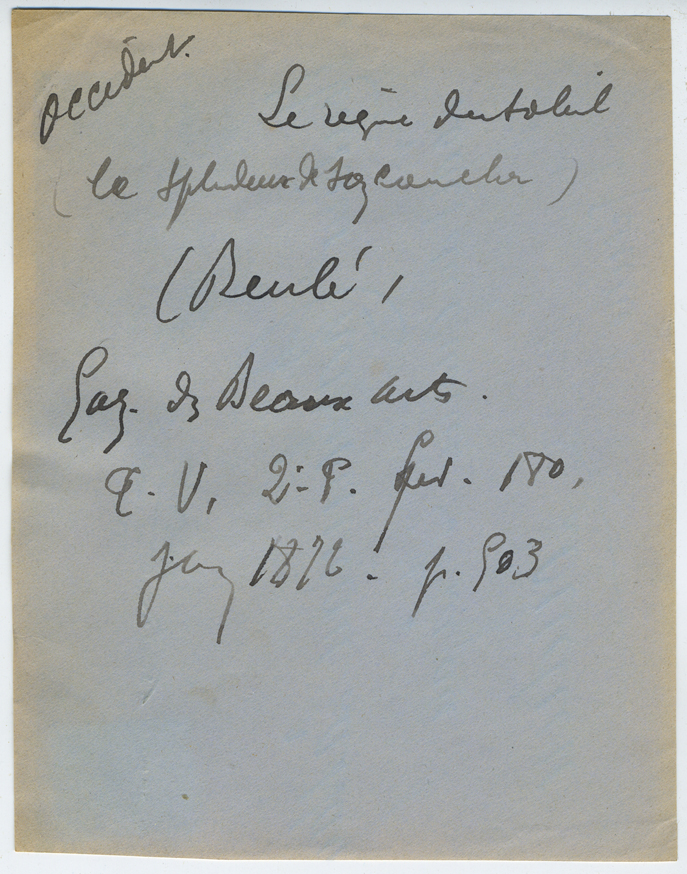 Occident.
Le règne du Soleil
(la splendeur de son coucher)
(Beulé,
Gaz. des Beaux arts.
T. V, 2e P. liv. 180,
juin 1872. p. 503